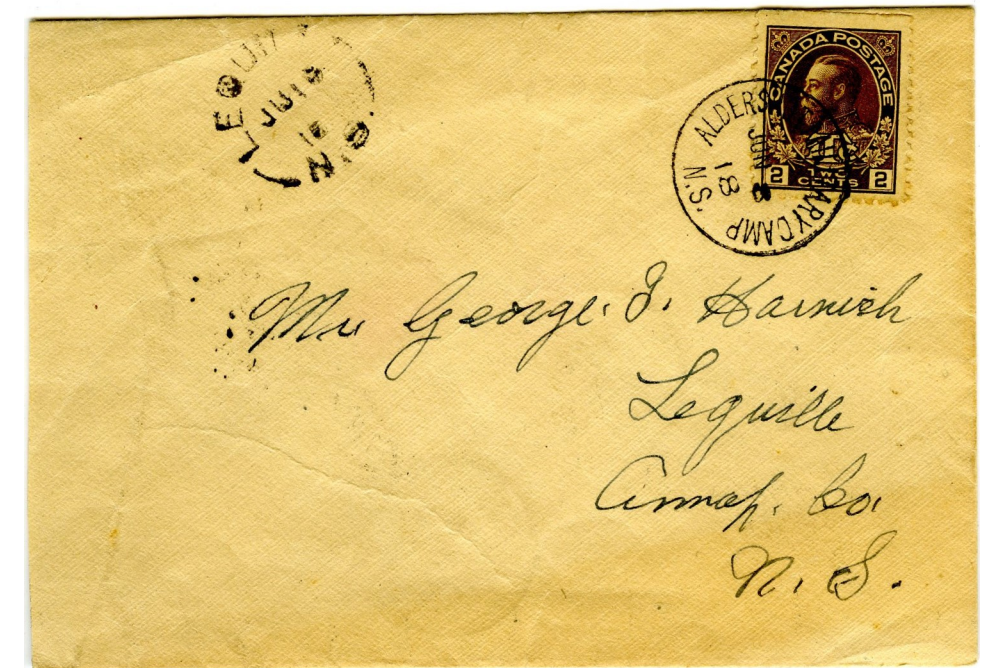 LEQUI
JU 19
18
N.S.
CANADA POSTAGE
2 TWO CENTS 2
ALDERS ARY CAMP
JUN
18
N.S.
Mr George. I. Harnish
Lequille
Annap. Co.
N. S.